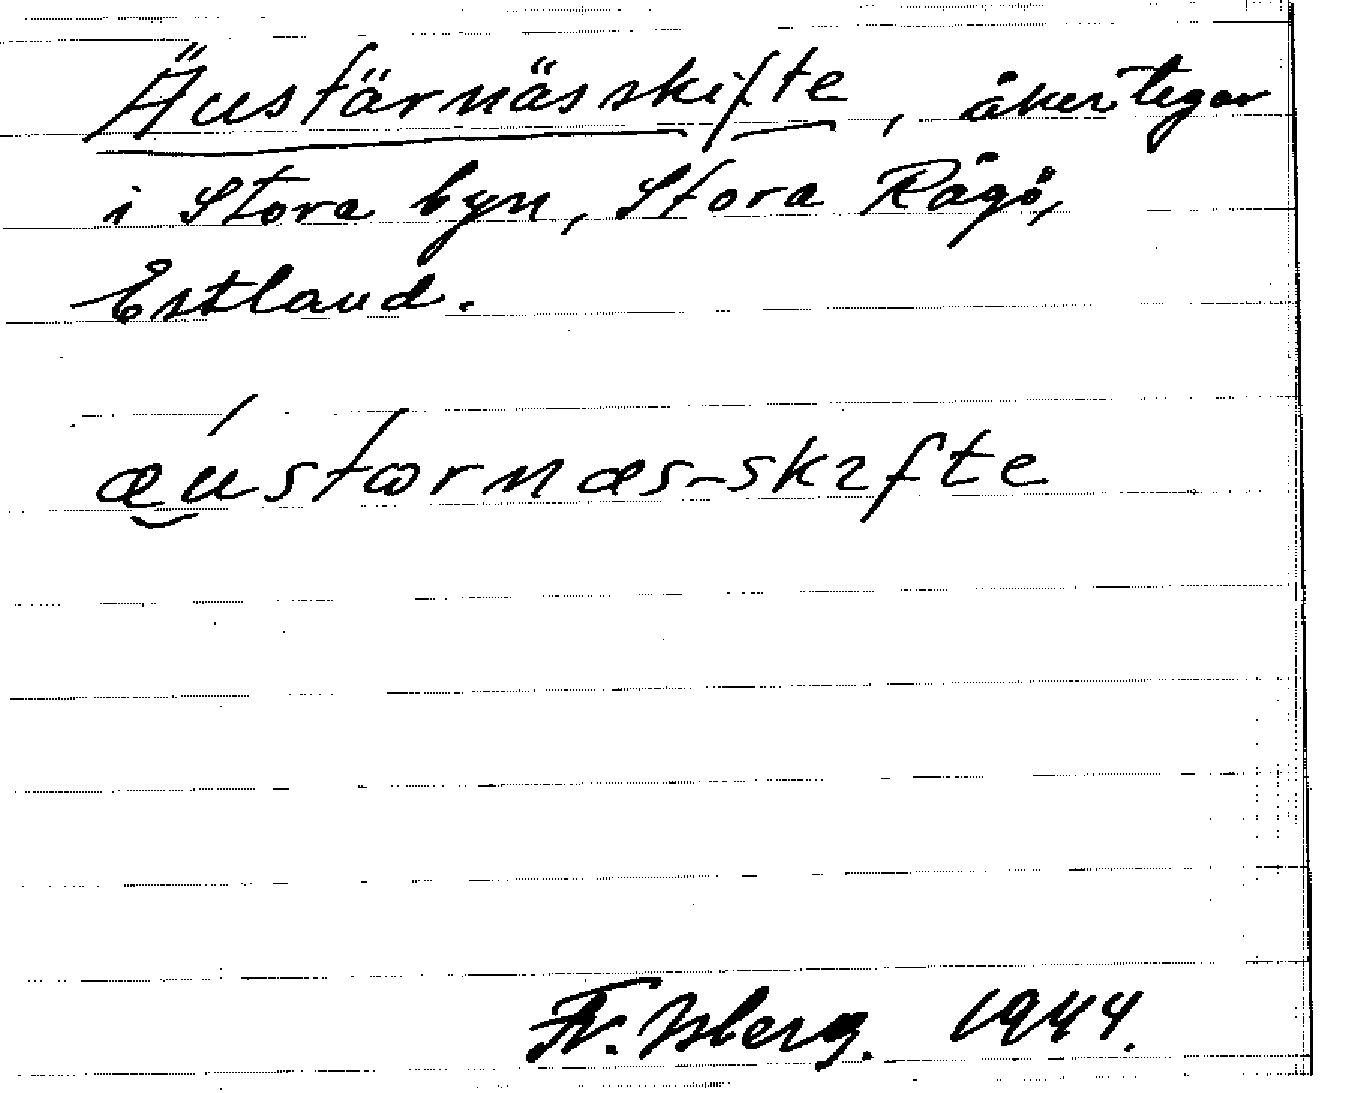 Äustärnässkifte, åkertegar
i Stora byn, Stora Rågö,
Estland.
æu̯stærnæs-skıfte
Fr. Isberg. 1944.